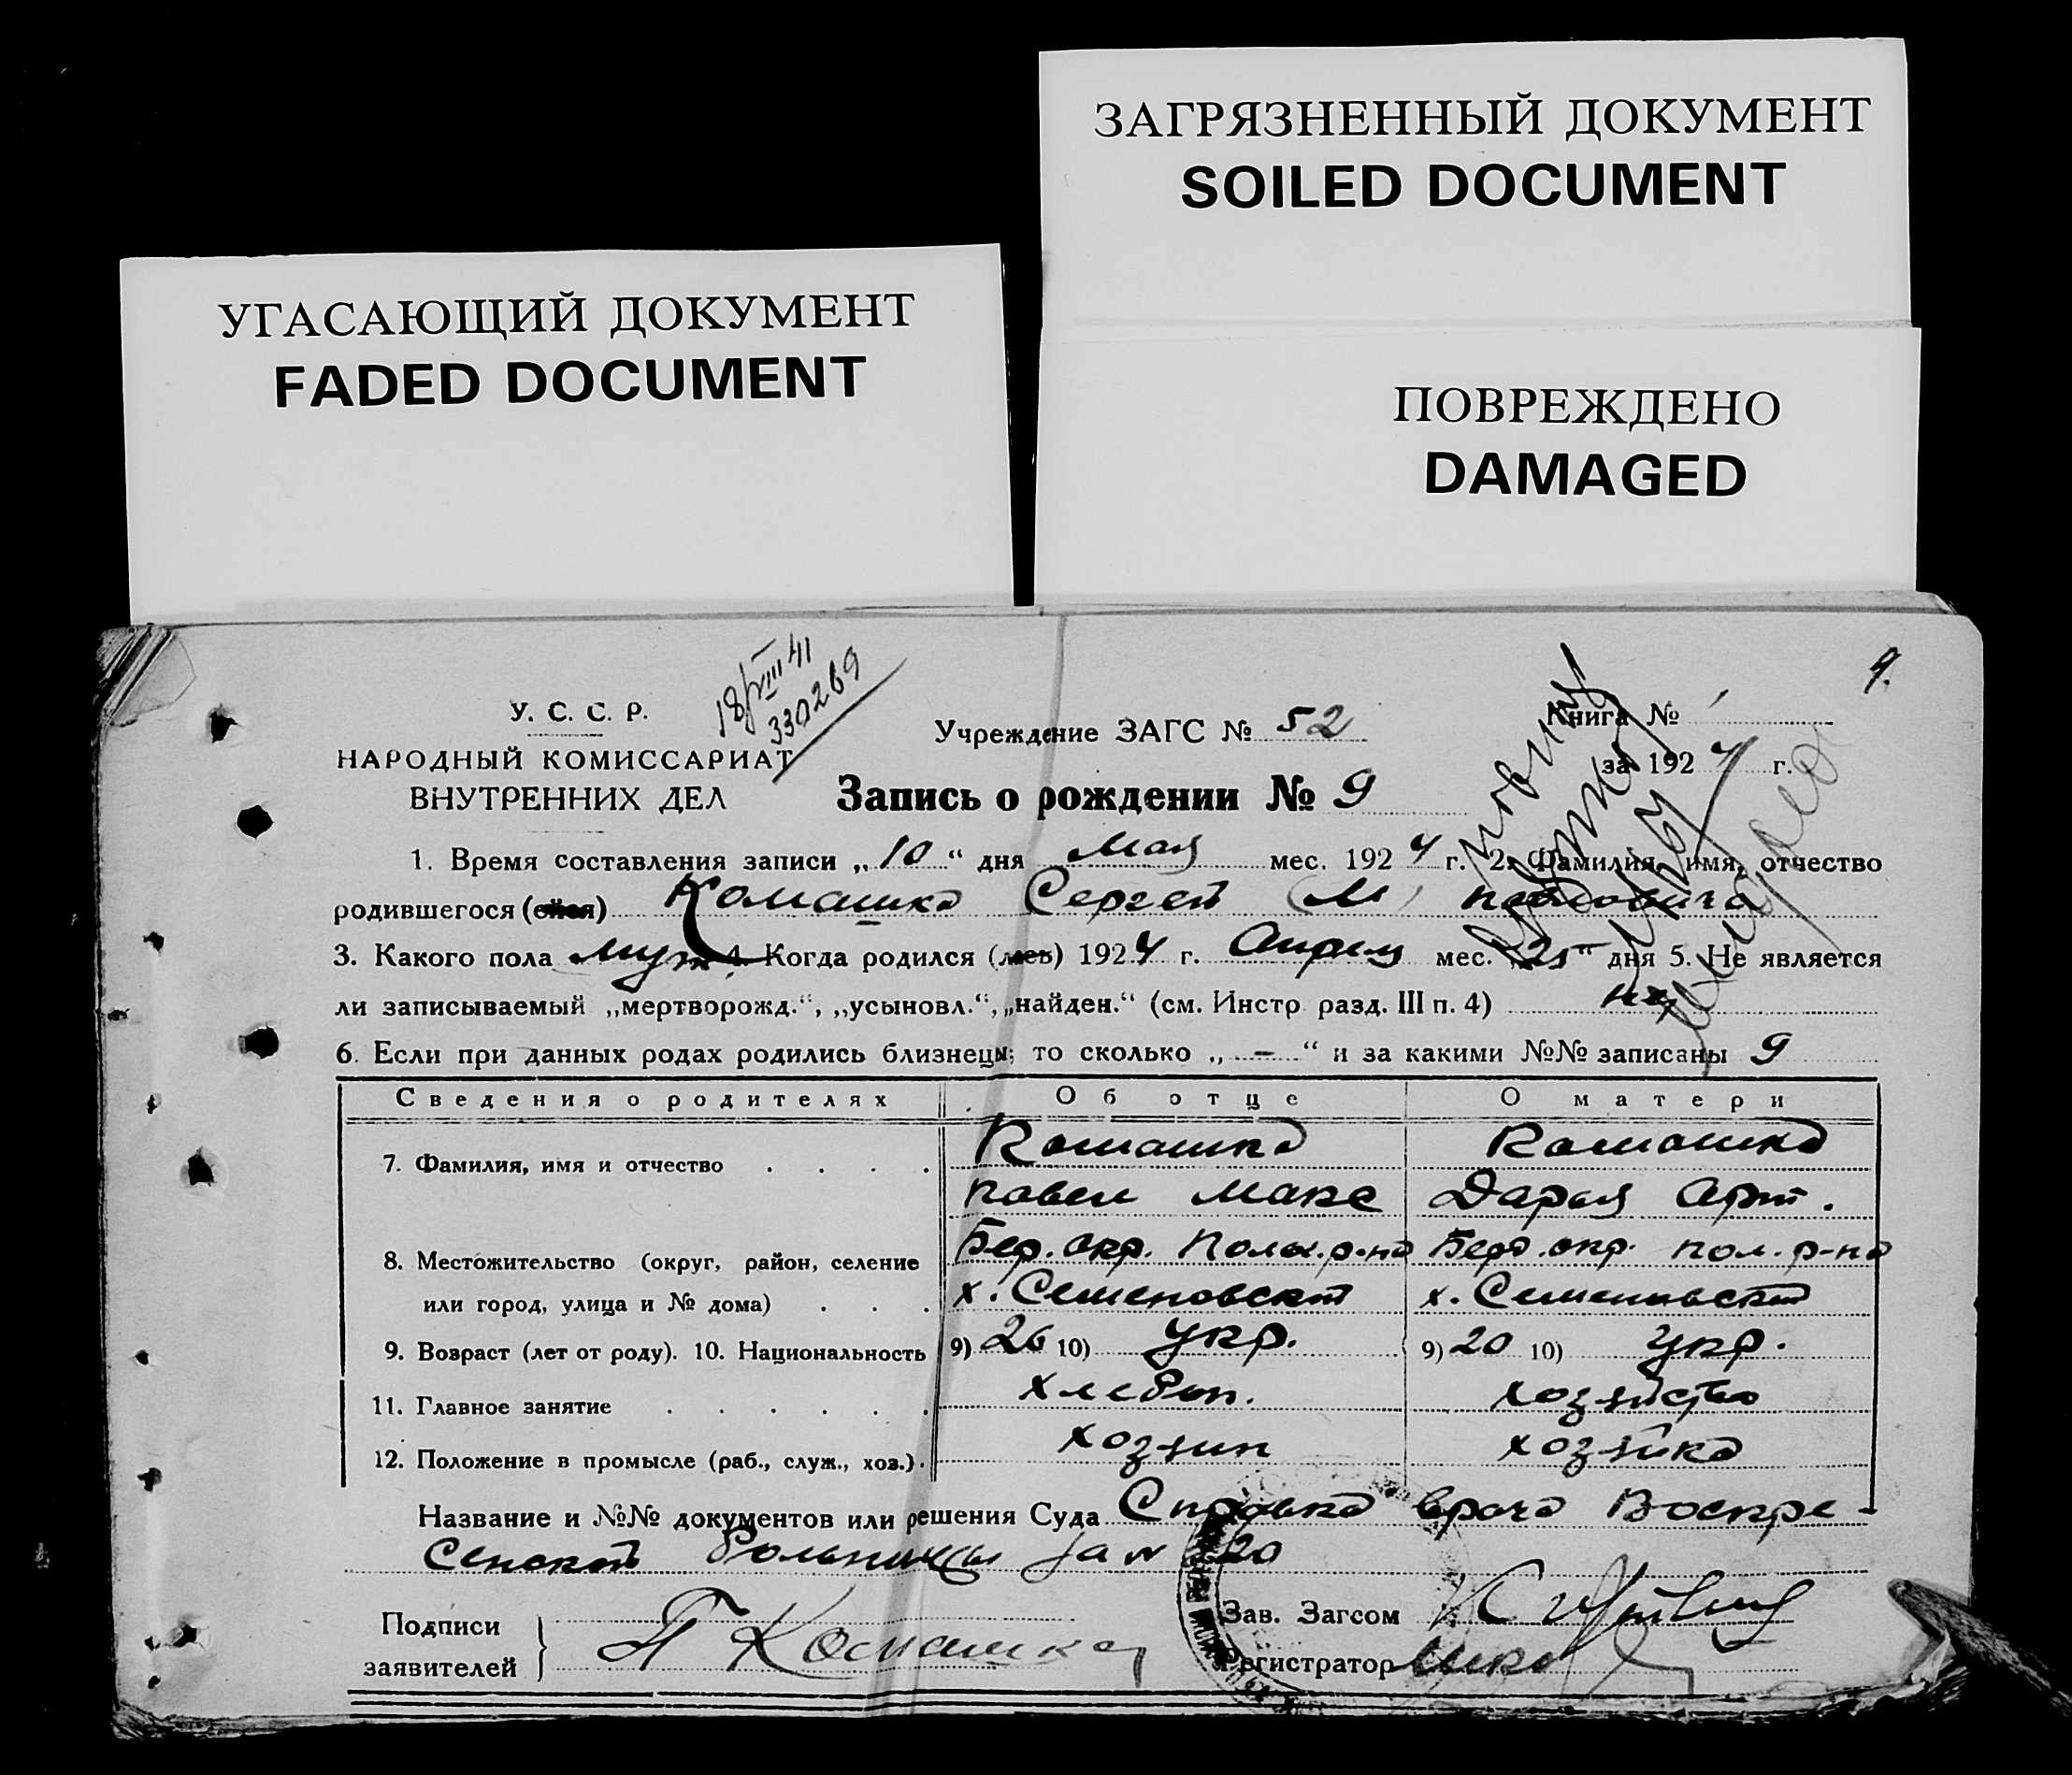 ЗАГРЯЗНЕННЫЙ ДОКУМЕНТ
SOILED DOCUMENT
УГАСАЮЩИЙ ДОКУМЕНТ
FADED DOCUMENT
ПОВРЕЖДЕНО
DAMAGED
9.
18/VIII 41
330269
У. С. С. Р.
НАРОДНЫЙ КОМИССАРИАТ
ВНУТРЕННИХ ДЕЛ
Учреждение ЗАГС № 52
Книга №
за 1924 г.
Запись о рождении № 9
1. Время составления записи „10“ дня Мая мес. 1924 г. 2. Фамилия, имя, отчество
родившегося (ейся) Комашко Сергей (М) Павлович
3. Какого пола муж. 4. Когда родился (лась) 1924 г. Апрель мес. „25“ дня 5. Не является
ли записываемый „мертворожд.“, „усыновл.“, „найден.“ (см. Инстр. разд. III п. 4)
6. Если при данных родах родились близнецы, то сколько „ – “ и за какими №№ записаны 9
Сведения о родителях Об отце О матери
7. Фамилия, имя и отчество . . . . Комашко Комашко
Павел Макс Дарья Арт.
8. Местожительство (округ, район, селение Бер. окр. Полог. р-на Берд. окр. Пол. р-на
или город, улица и № дома) . . . х. Семеновский х. Семеновский
9. Возраст (лет от роду). 10. Национальность 9) 26 10) Укр. 9) 20 10) Укр.
11. Главное занятие . . . . . . хлебоп. хозяйство
12. Положение в промысле (раб., служ., хоз.). хозяин хозяйка
Название и №№ документов или решения Суда Справка врача Воскре-
сенской больницы за № 20
Подписи
заявителей П Комашко
Зав. Загсом
Регистратор